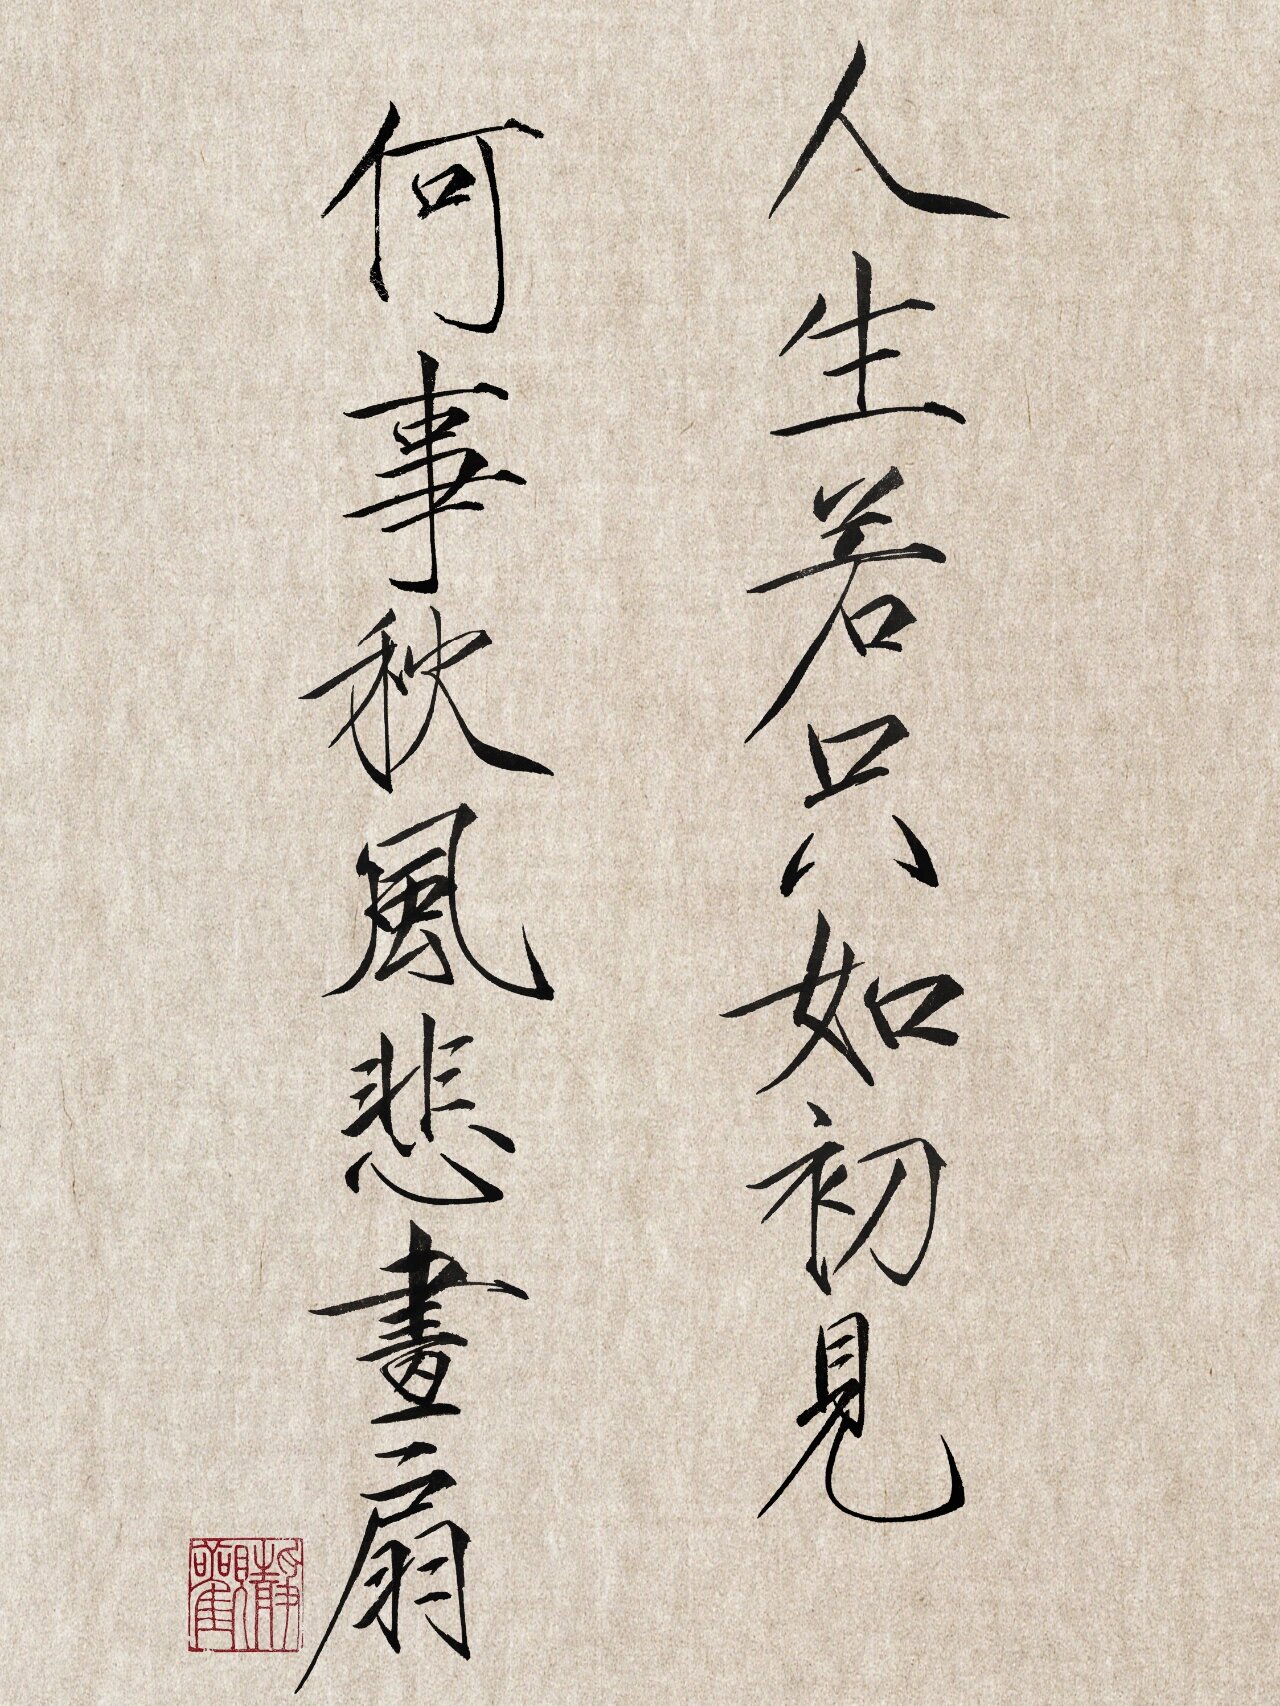 人生若只如初見
何事秋風悲畫扇
靜觀